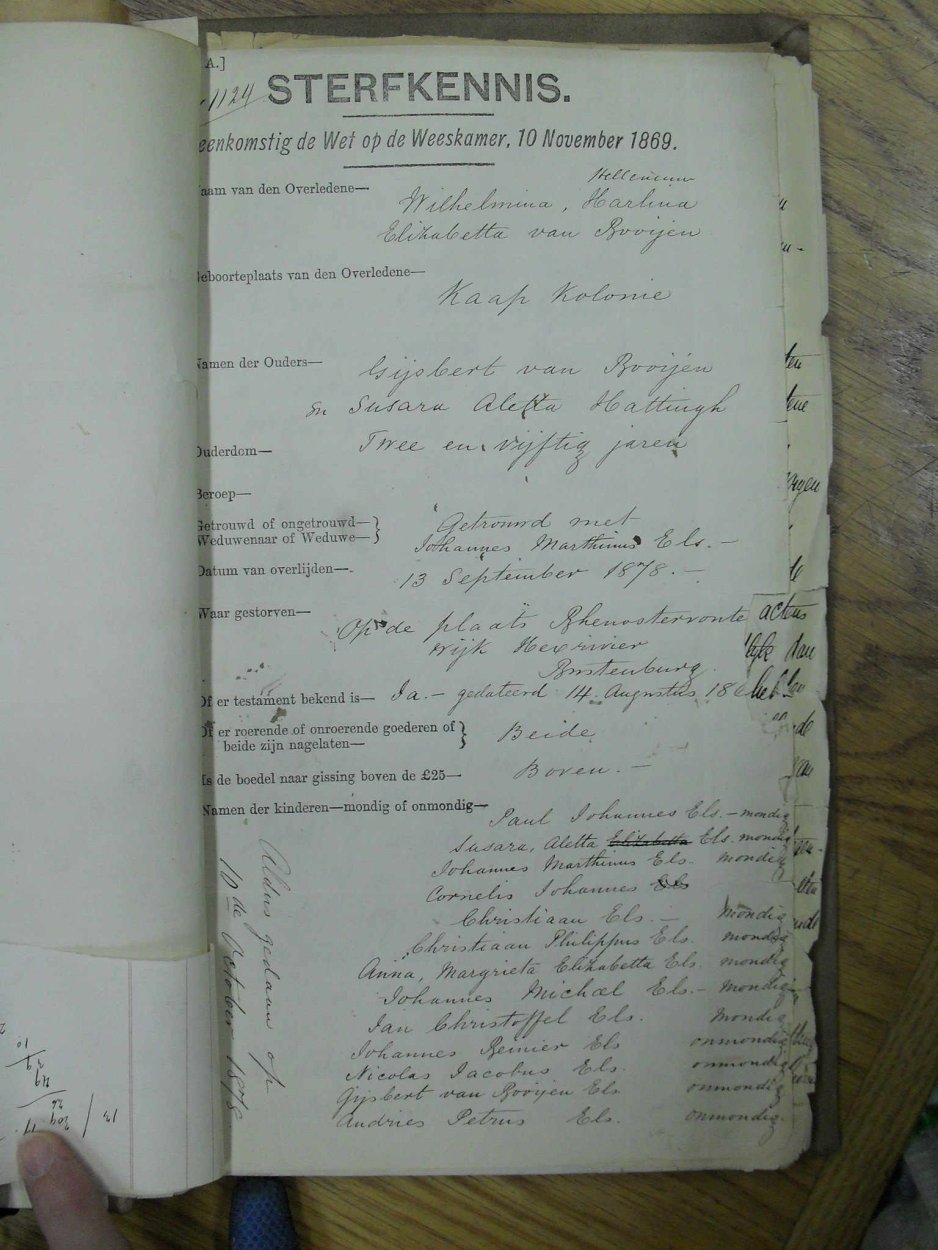 A.]
1124
STERFKENNIS.
eenkomstig de Wet op de Weeskamer, 10 November 1869.
aam van den Overledene—
Wilhelmina, Harlina
Elizabetta van Booijen
Geboorteplaats van den Overledene—
Kaap Kolonie
Namen der Ouders—
Gijsbert van Booijen
En Susara Aletta Hattingh
Ouderdom—
Twee en vijftig jaren
Beroep—
Getrouwd of ongetrouwd—}
Weduwenaar of Weduwe—}
Getrouwd met
Johannes Marthinus Els.—
Datum van overlijden—
13 September 1878.—
Waar gestorven—
Op de plaats Rhenostervonte
wijk Hexrivier
Rustenburg.
Of er testament bekend is—
Ja.— gedateerd 14 Augustus 186
Of er roerende of onroerende goederen of }
beide zijn nagelaten— }
Beide.
Is de boedel naar gissing boven de £25—
Boven.—
Namen der kinderen—mondig of onmondig—
Paul Johannes Els.— mondig
Susara, Aletta Elizabetta Els. mondig
Johannes Marthinus Els. mondig
Cornelis Johannes Els
Christiaan Els.— mondig
Christiaan Philippus Els. mondig
Anna, Margrieta Elizabetta Els. mondig
Johannes Michael Els.— mondig
Jan Christoffel Els. mondig
Johannes Reinier Els onmondig
Nicolas Jacobus Els. onmondig
Gijsbert van Booijen Els onmondig
Andries Petrus Els. onmondig
Aldus gedaan op
10 de October 1878